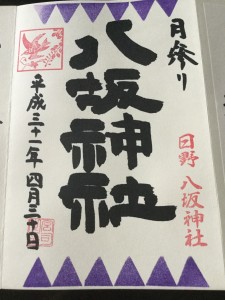 月参り
八坂神社
日野 八坂神社
平成三十一年 四月三十日